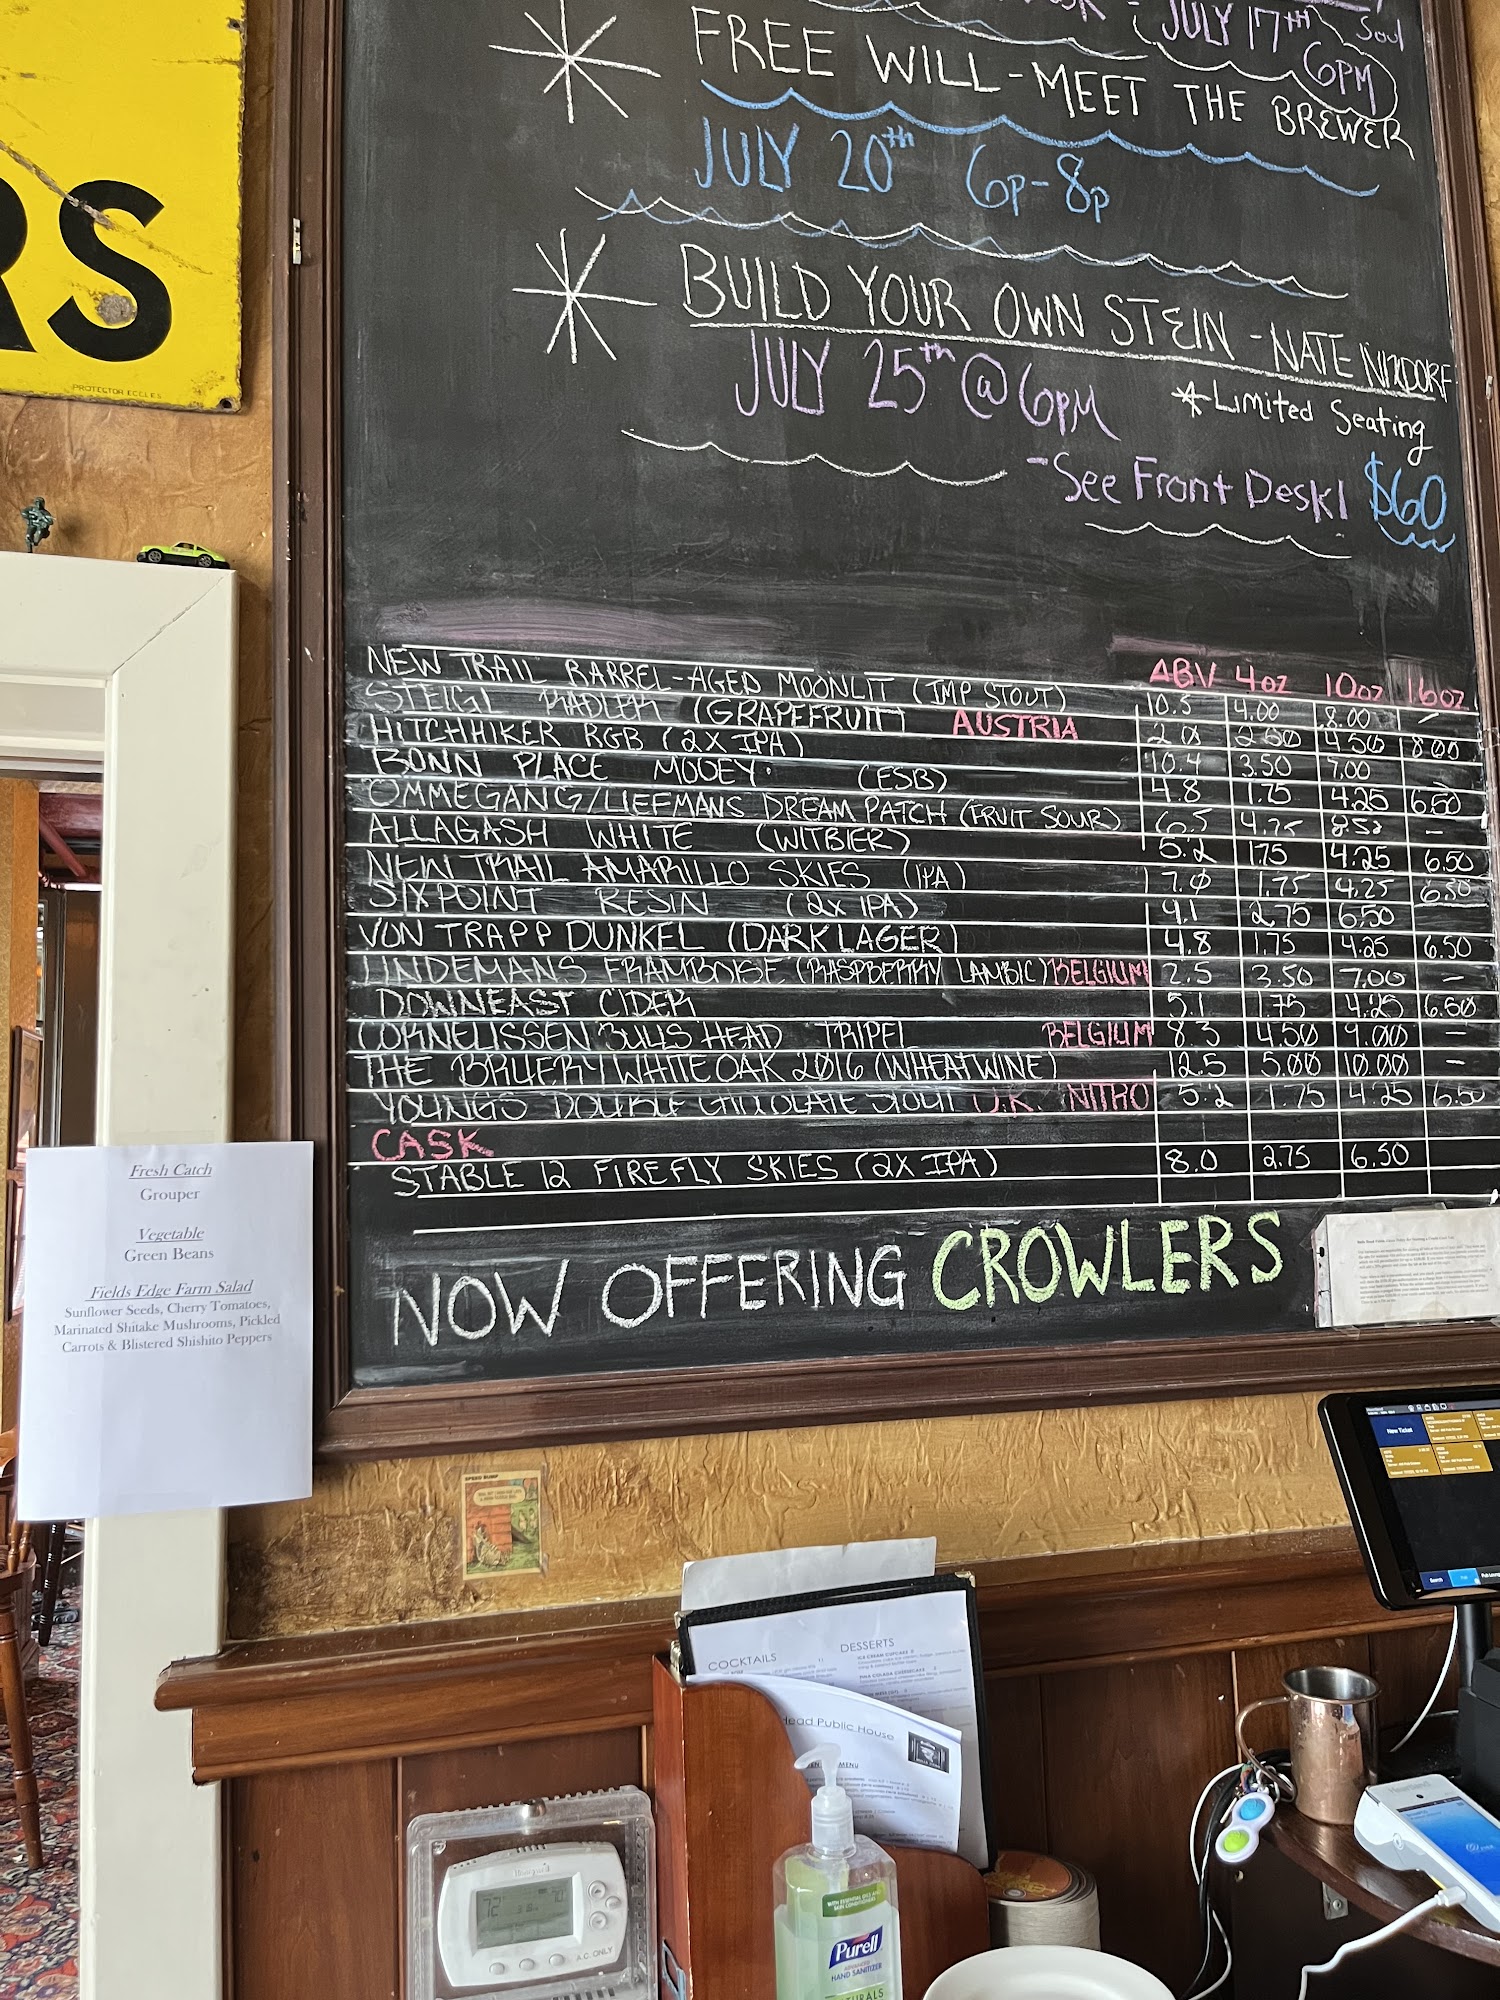 JULY 17TH
Soul
6PM
FREE WILL - MEET THE BREWER
JULY 20th 6p-8p
BUILD YOUR OWN STEIN - NATE NIXDORF
JULY 25th @ 6PM
*Limited Seating
-See Front Desk! $60
RS
PROTECTOR ECCLES
ABV 4oz 10oz 16oz
NEW TRAIL BARREL-AGED MOONLIT (IMP STOUT) 10.5 4.00 8.00 -
STEIGL RADLER (GRAPEFRUIT) AUSTRIA 2.0 2.50 4.50 8.00
HITCHHIKER RGB (2X IPA) 10.4 3.50 7.00
BONN PLACE MOOEY. (ESB) 4.8 1.75 4.25 6.50
OMMEGANG/LIEFMANS DREAM PATCH (FRUIT SOUR) 6.5 4.75 8.50 -
ALLAGASH WHITE (WITBIER) 5.2 1.75 4.25 6.50
NEW TRAIL AMARILLO SKIES (IPA) 7.0 1.75 4.25 6.50
SIXPOINT RESIN (2X IPA) 9.1 2.75 6.50
VON TRAPP DUNKEL (DARK LAGER) 4.8 1.75 4.25 6.50
LINDEMANS FRAMBOISE (RASPBERRY LAMBIC) BELGIUM 2.5 3.50 7.00 -
DOWNEAST CIDER 5.1 1.75 4.25 6.50
CORNELISSEN BULLS HEAD TRIPEL BELGIUM 8.3 4.50 9.00 -
THE BRUERY WHITE OAK 2016 (WHEATWINE) 12.5 5.00 10.00 -
YOUNGS DOUBLE CHOCOLATE STOUT U.K. NITRO 5.2 1.75 4.25 6.50
CASK
STABLE 12 FIREFLY SKIES (2X IPA) 8.0 2.75 6.50
NOW OFFERING CROWLERS
Fresh Catch
Grouper
Vegetable
Green Beans
Fields Edge Farm Salad
Sunflower Seeds, Cherry Tomatoes,
Marinated Shitake Mushrooms, Pickled
Carrots & Blistered Shishito Peppers
SPEED BUMP
New Ticket
Search
COCKTAILS
DESSERTS
ICE CREAM CUPCAKE
Head Public House
MENU
Honeywell
72
A.C. ONLY
WITH ESSENTIAL OILS AND
SKIN CONDITIONERS
Purell
ADVANCED
HAND SANITIZER
NATURALS